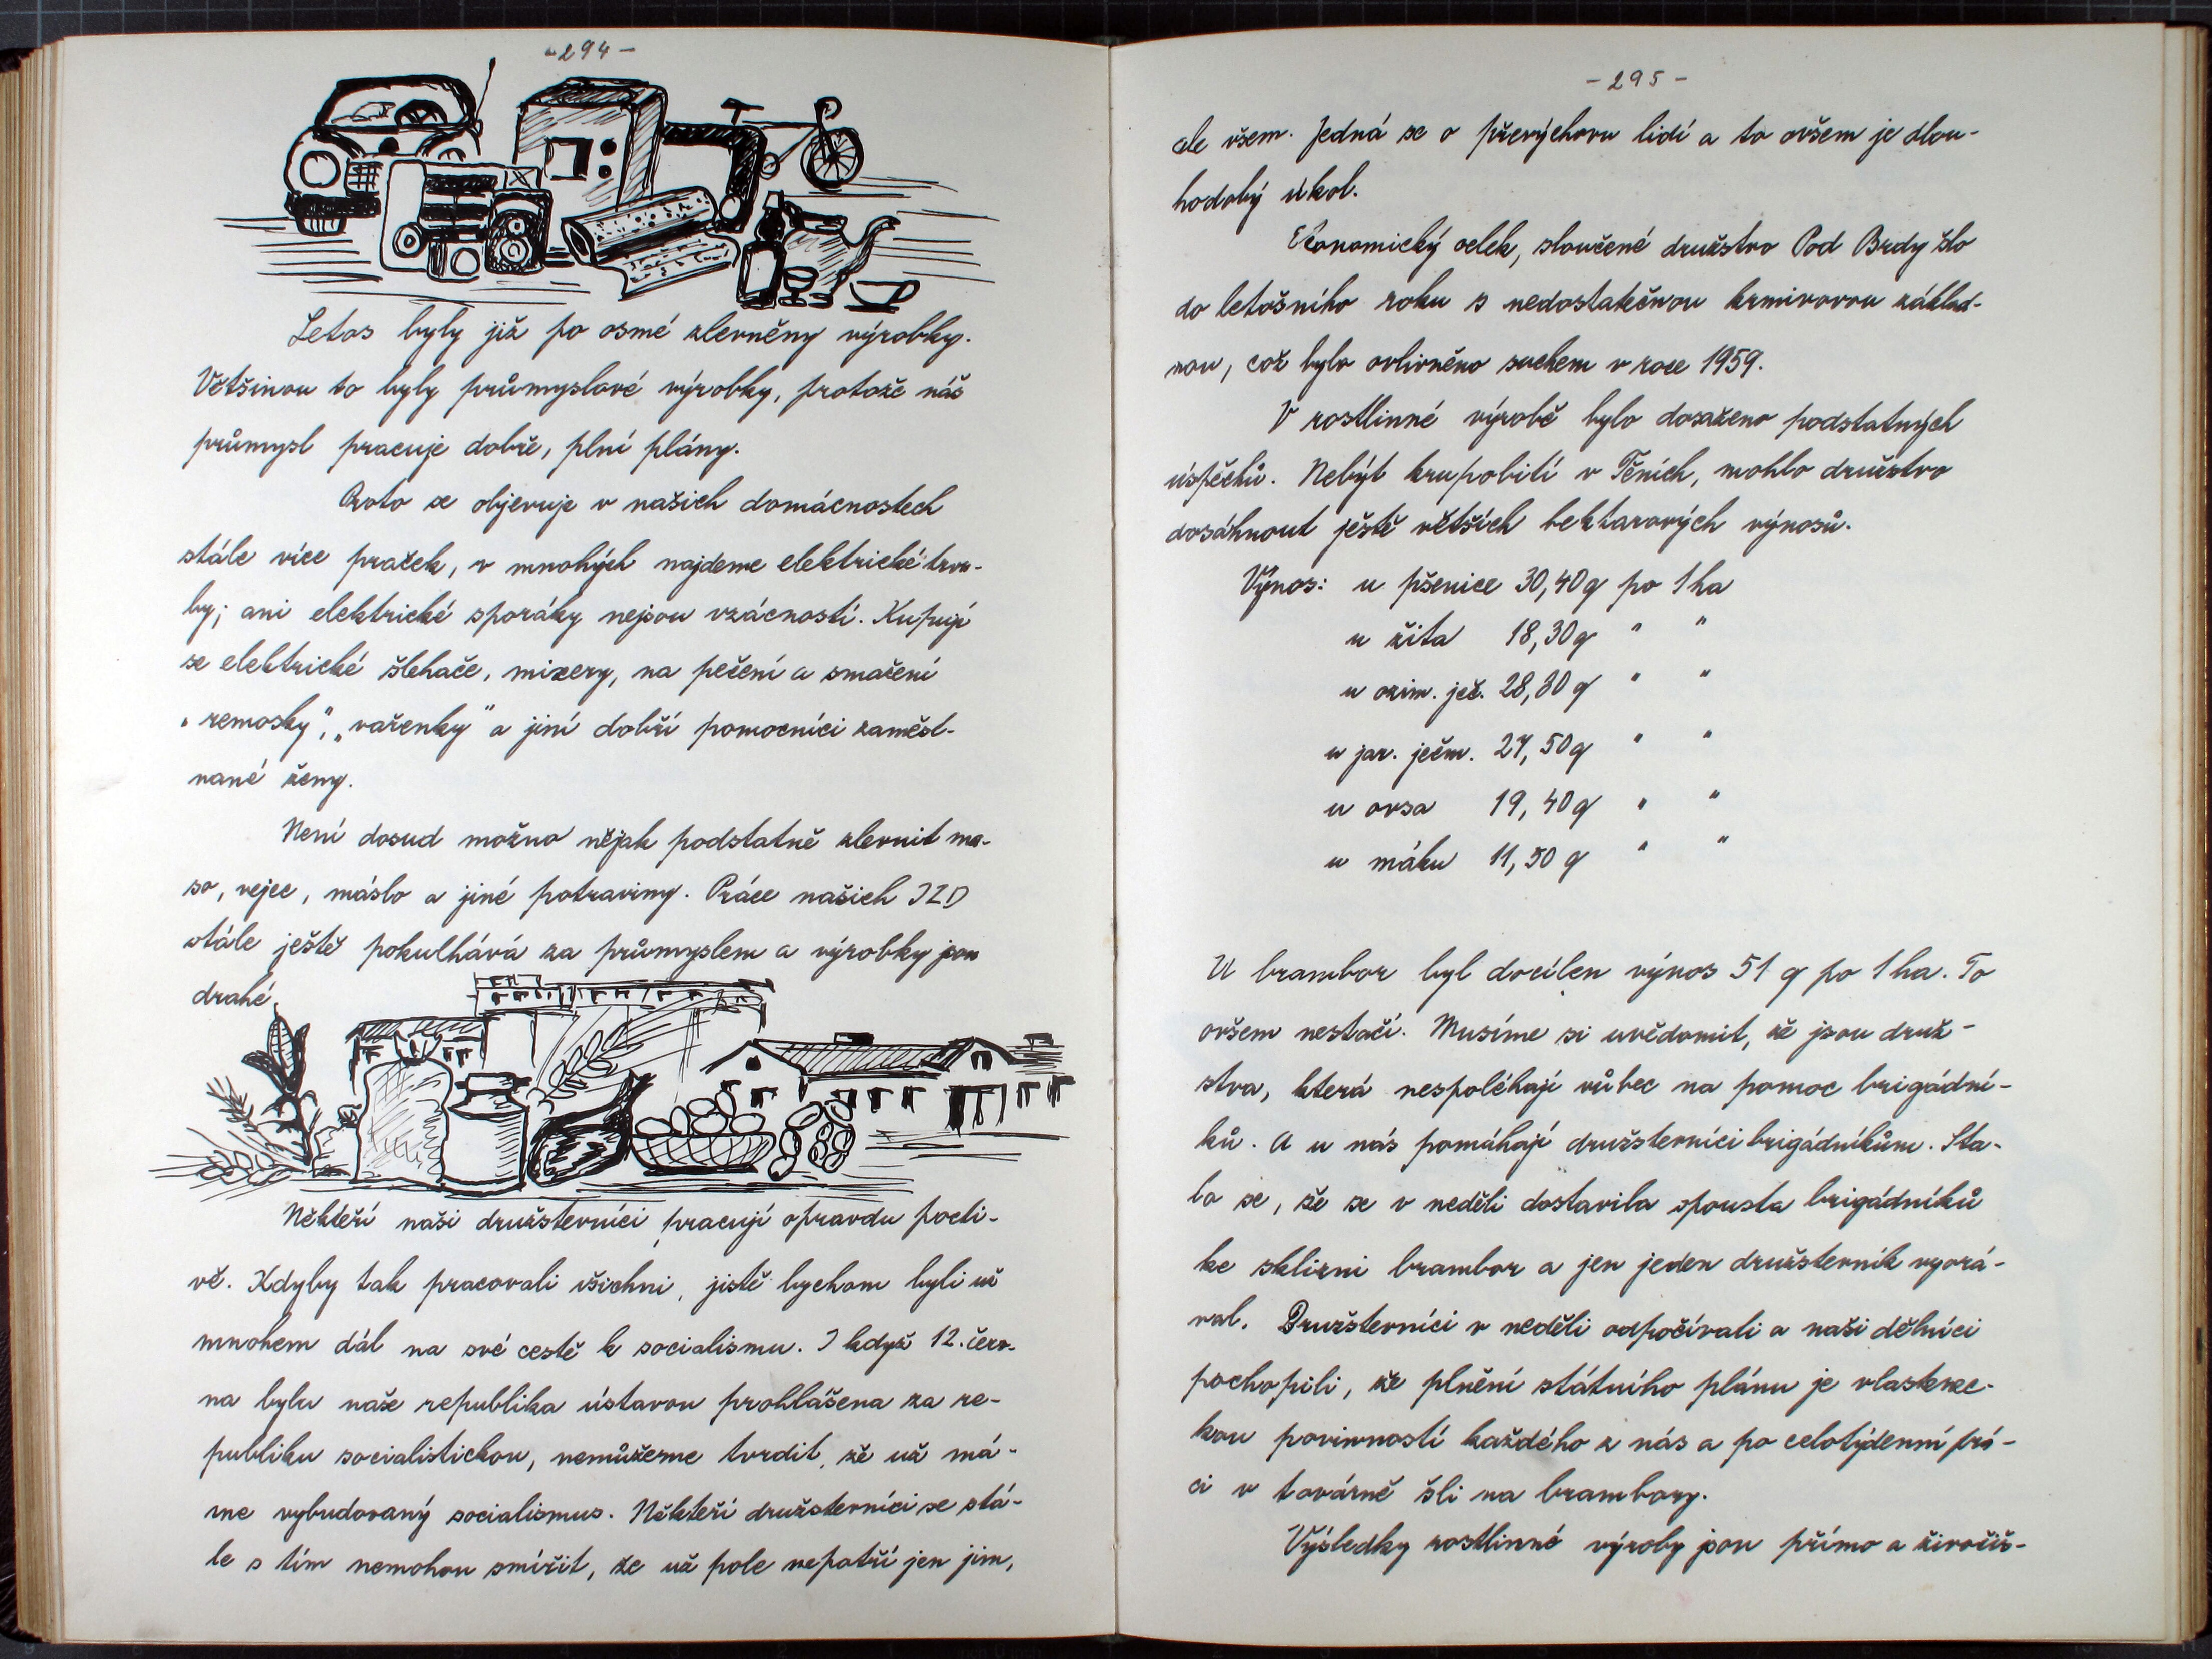 - 294 -
Letos byly již po osmé zlevněny výrobky.
Většinou to byly průmyslové výrobky, protože náš
průmysl pracuje dobře, plní plány.
Proto se objevuje v našich domácnostech
stále více praček, v mnohých najdeme elektrické trou-
by; ani elektrické sporáky nejsou vzácností. Kupují
se elektrické šlehače, mixery, na pečení a smažení
„remosky", „vařenky" a jiní dobří pomocníci zaměst-
nané ženy.
Není dosud možno nějak podstatně zlevnit ma-
so, vejce, máslo a jiné potraviny. Práce našich JZD
stále ještě pokulhává za průmyslem a výrobky jsou
drahé.
Někteří naši družstevníci pracují opravdu pocti-
vě. Kdyby tak pracovali všichni, jistě bychom byli už
mnohem dál na své cestě k socialismu. I když 12. červ-
na byla naše republika ústavou prohlášena za re-
publiku socialistickou, nemůžeme tvrdit, že už má-
me vybudovaný socialismus. Někteří družstevníci se stá-
le s tím nemohou smířit, že už pole nepatří jen jim,
- 295 -
ale všem. Jedná se o převýchovu lidí a to ovšem je dlou-
hodobý úkol.
Ekonomický celek, sloučené družstvo Pod Brdy šlo
do letošního roku s nedostatečnou krmivovou základ-
nou, což bylo ovlivněno suchem v roce 1959.
V rostlinné výrobě bylo dosaženo podstatných
úspěchů. Nebýt krupobití v Těních, mohlo družstvo
dosáhnout ještě větších hektarových výnosů.
Výnos: u pšenice 30,40 q po 1 ha
u žita 18,30 q " "
u ozim. ječ. 28,80 q " "
u jar. ječm. 27,50 q " "
u ovsa 19,40 q " "
u máku 11,50 q " "
U brambor byl docílen výnos 51 q po 1 ha. To
ovšem nestačí. Musíme si uvědomit, že jsou druž-
stva, která nespoléhají vůbec na pomoc brigádní-
ků. A u nás pomáhají družstevníci brigádníkům. Sta-
lo se, že se v neděli dostavila spousta brigádníků
ke sklizni brambor a jen jeden družstevník vyorá-
val. Družstevníci v neděli odpočívali a naši dělníci
pochopili, že plnění státního plánu je vlastenec-
kou povinností každého z nás a po celotýdenní prá-
ci v továrně šli na brambory.
Výsledky rostlinné výroby jsou přímo a živočiš-